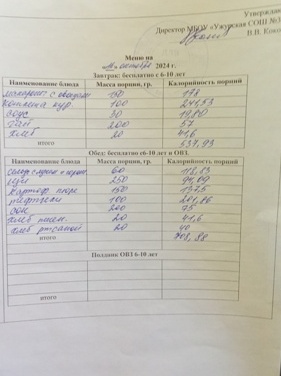 Утверждаю
Директор МБОУ «Ужурская СОШ №3
В.В. Коню
Меню на
октября 2024 г.
Завтрак: бесплатно с 6-10 лет
Наименование блюда Масса порции, гр. Калорийность порции
макароны с овощами 198
Котлета кур. 100 241,53
соус 30 19,80
чай 200 57
хлеб 20 41,6
итого
Обед: бесплатно с6-10 лет и ОВЗ.
Наименование блюда Масса порции, гр. Калорийность порции
60 118,83
250
Картоф. пюре 150 137,5
100 201,86
сок 200 75
хлеб пшен. 20 41,6
хлеб ржаной 20 40
708,88
Полдник ОВЗ 6-10 лет
итого